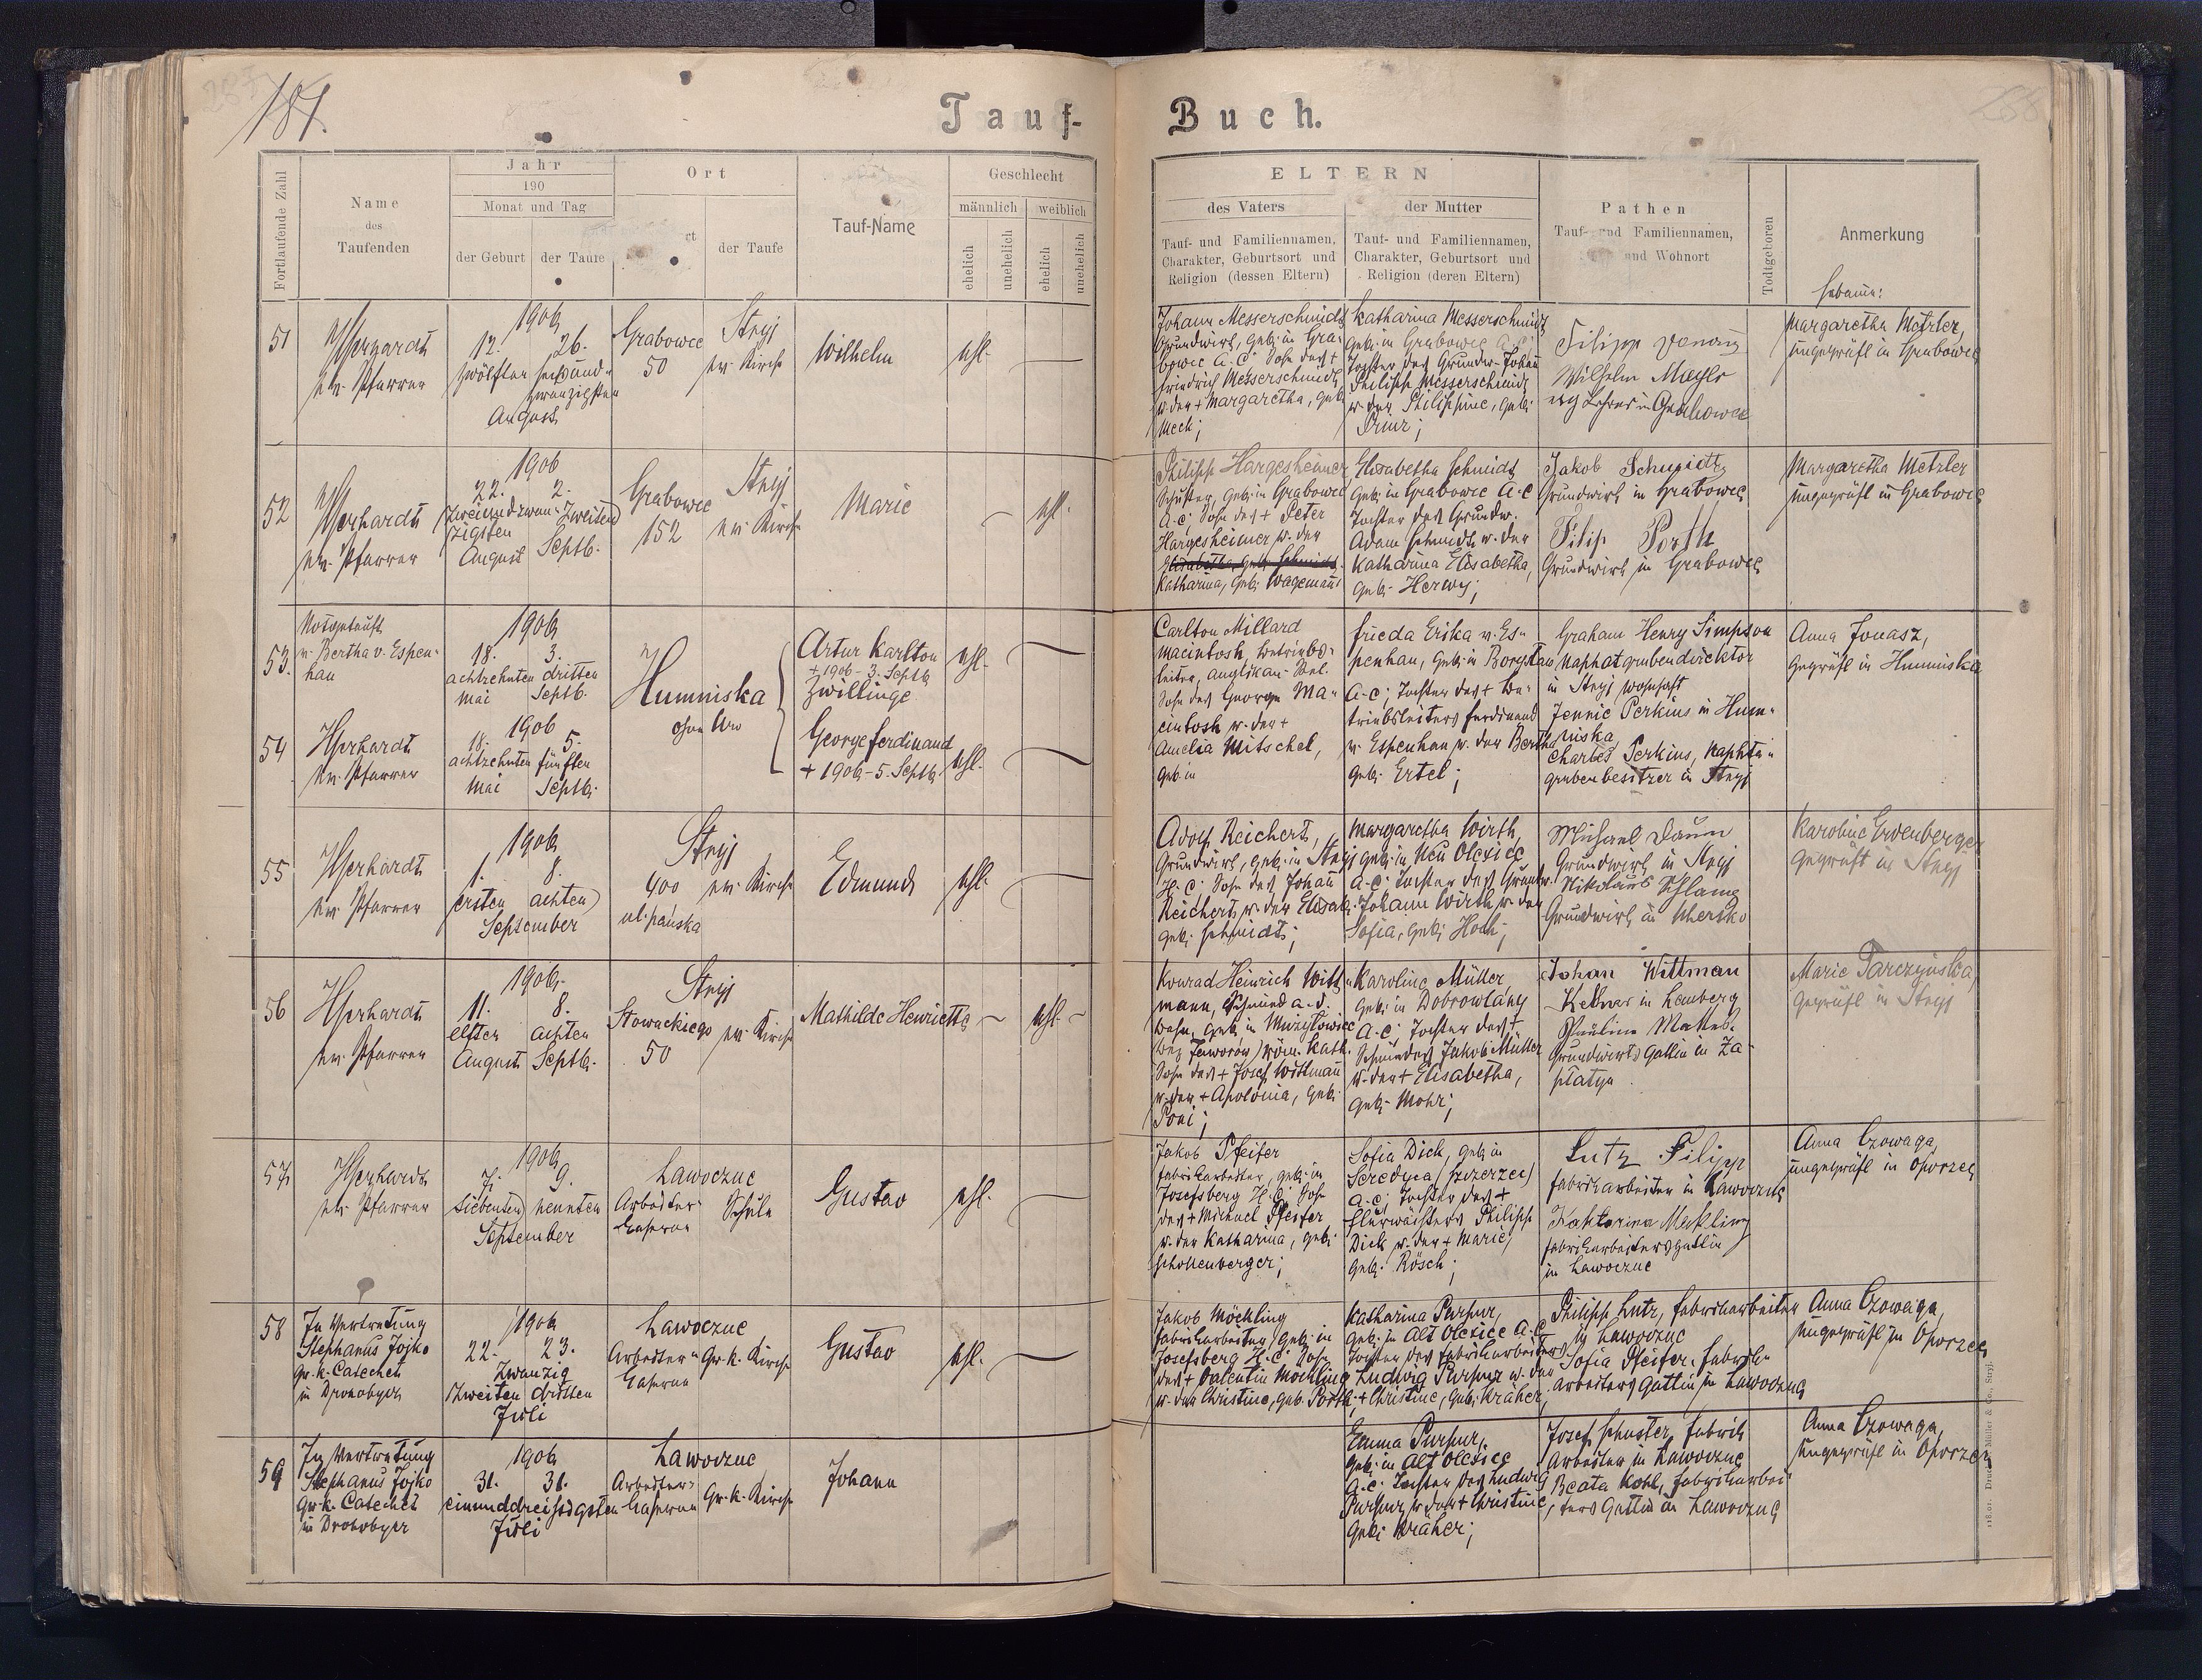 181.
Tauf-
Buch.
Fortlaufende Zahl
Name
des
Taufenden
Jahr
190
Monat und Tag
der Geburt
der Taufe
Ort
der Taufe
Tauf-Name
Geschlecht
männlich
weiblich
ehelich
unehelich
ehelich
unehelich
ELTERN
des Vaters
Tauf- und Familiennamen,
Charakter, Geburtsort und
Religion (dessen Eltern)
der Mutter
Tauf- und Familiennamen,
Charakter, Geburtsort und
Religion (deren Eltern)
Pathen
Tauf- und Familiennamen,
und Wohnort
Todtgeboren
Anmerkung
Hebamme:
51
ev. Pfarrer
1906
12. 26.
zwölften sechsund-
zwanzigsten
August
Grabowce
50
Stryj
ev. Kirche
Wilhelm
ehl.
Johann Messerschmidt
Grundwirt, geb. in Gra-
bowce A.C. Sohn des +
Friedrich Messerschmidt
u. der + Margaretha, geb.
Mech;
Katharina Messerschmidt
geb. in Grabowce A.C.
Tochter des Grundw. Johann
Philipp Messerschmidt
u. der Philippine, geb.
Prinz;
Filipp
Wilhelm
Lehrer in Grabowce
Margaretha Metzler,
ungeprüft in Grabowce
52
ev. Pfarrer
1906
22. 2.
Zweiundzwan- Zweiten
zigsten
August Septb.
Grabowce
152
Stryj
ev. Kirche
Marie
ehl.
Philipp Hargesheimer
geb. in Grabowce
A.C; Sohn des + Peter
Hargesheimer u. der
Elisabetha, geb. Schmidt
Katharina, geb. Wagemann
Elisabetha Schmidt
geb. in Grabowce A.C
Tochter des Grundw.
Adam Schmidt u. der
Katharina Elisabetha,
geb. Herwy;
Jakob Schmidt
Grundwirt in Grabowce
Filip Porth
Grundwirt in Grabowce
Margaretha Metzler
ungeprüft in Grabowce
53.
Notgetauft
v. Bertha v. Espen-
han
1906
18. 3.
achtzehnten dritten
Mai Septb.
Humniska
ohne Nro
Artur Karlton
+ 1906 - 3. Septb
Zwillinge
ehl.
Carlton Millard
Macintosh, Betriebs-
leiter, anglikan. Rel.
Sohn des George Ma-
cintosh u. der +
Amelia Mitschel,
geb. in
Frieda Erika v. Es-
penhan, geb. in
A.C; Tochter des + Be-
triebsleiters Ferdinand
v. Espenhan u. der Bertha
geb. Ertel;
Graham Henry Simpson
Naphatgrubendirektor
in Stryj wohnhaft
Jennie Perkins in Hum-
niska
Charles Perkins, Naphta-
grubenbesitzer in Stryj
Anna Jonasz,
geprüft in Humniska
54
ev. Pfarrer
1906
18. 5.
achtzehnten fünften
Mai Septb.
George Ferdinand
+ 1906 - 5. Septb
ehl.
55
ev. Pfarrer
1906
1. 8.
ersten achten
September
Stryj
400 ev. Kirche
ul. pańska
Edmund
ehl.
Adolf Reichert,
Grundwirt, geb. in Stryj
H.C. Sohn des Johann
Reichert u. der Elisab.
geb. Schmidt;
Margaretha Wirth,
geb. in Neu Olexice
A.C; Tochter des Grundw.
Johann Wirth u. der
Sofia, geb. Hoch;
Michael Daum
Grundwirt in Stryj
Nikolaus
Grundwirt in Uhersko
Karoline
geprüft in Stryj
56
ev. Pfarrer
1906.
11. 8.
elften achten
August Septb.
Stryj
Słowackiego
50
ev. Kirche
Mathilde Henrietta
ehl.
Konrad Heinrich Witt-
mann, Schmied a. d.
Bahn, geb. in
Bez. Jaworów) röm. kath.
Sohn des + Josef Wittmann
u. der + Apolonia, geb.
Poni;
Karoline Müller
geb. in Dobrowlany
A.C; Tochter des +
Schmiedes Jakob Müller
u. der + Elisabetha,
geb. Mohr;
Johan Wittman
Kelner in Lemberg
Pauline
Grundwirts Gattin in Za-
płatyn
Marie Tarczyńska
geprüft in Stryj
57
ev. Pfarrer
1906
7. 9.
siebenten neunten
September
Lawoczne
Arbeiter-
Caserne
Schule
Gustav
ehl.
Jakob Pfeifer
Fabriksarbeiter, geb. in
Josefsberg H.C; Sohn
des + Michael Pfeifer
u. der Katharina, geb.
Schollenberger;
Sofia Dick, geb. in
Seredyca (Szczerzec)
A.C; Tochter des +
Flurwächters Philipp
Dick u. der + Marie,
geb. Rösch;
Lutz Filipp
Fabriksarbeiter in Lawoczne
Kathorina Mekling
Fabriksarbeitersgattin
in Lawoczne
Anna Czowaga,
ungeprüft in Oporzec
58
In Vertretung
Stephanus Jojko
Gr. k. Catechet
in Drohobycz
1906
22. 23.
Zwanzig
zweiten dritten
Juli
Lawoczne
Arbeiter-
Caserne
Gr. k. Kirche
Gustav
ehl.
Jakob Möckling
Fabriksarbeiter, geb. in
Josefsberg H.C; Sohn
des + Valentin Möckling
u. der Christine, geb. Porth;
Katharina Purpur,
geb. in Alt Olexice A.C
Tochter des Fabriksarbeiters
Ludwig Purpur u. der
+ Christine, geb. Kräher;
Philipp Lutz, Fabriksarbeiter
in Lawoczne
Sofia Pfeifer, Fabriks-
arbeiters Gattin in Lawoczne
Anna Czowaga,
ungeprüft in Oporzec
59
In Vertretung
Stephanus Jojko
Gr. k. Catechet
in Drohobycz
1906
31. 31.
einunddreissigsten
Juli
Lawoczne
Arbeiter-
Caserne
Gr. k. Kirche
Johann
Emma Purpur,
geb. in Alt Olexice
A.C. Tochter des Ludwig
Purpur u. der + Christine,
geb. Kräher;
Josef Schuster, Fabriks
Arbeiter in Lawoczne
Beata Kohl, Fabriksarbei-
ters Gattin in Lawoczne
Anna Czowaga,
ungeprüft in Oporzec